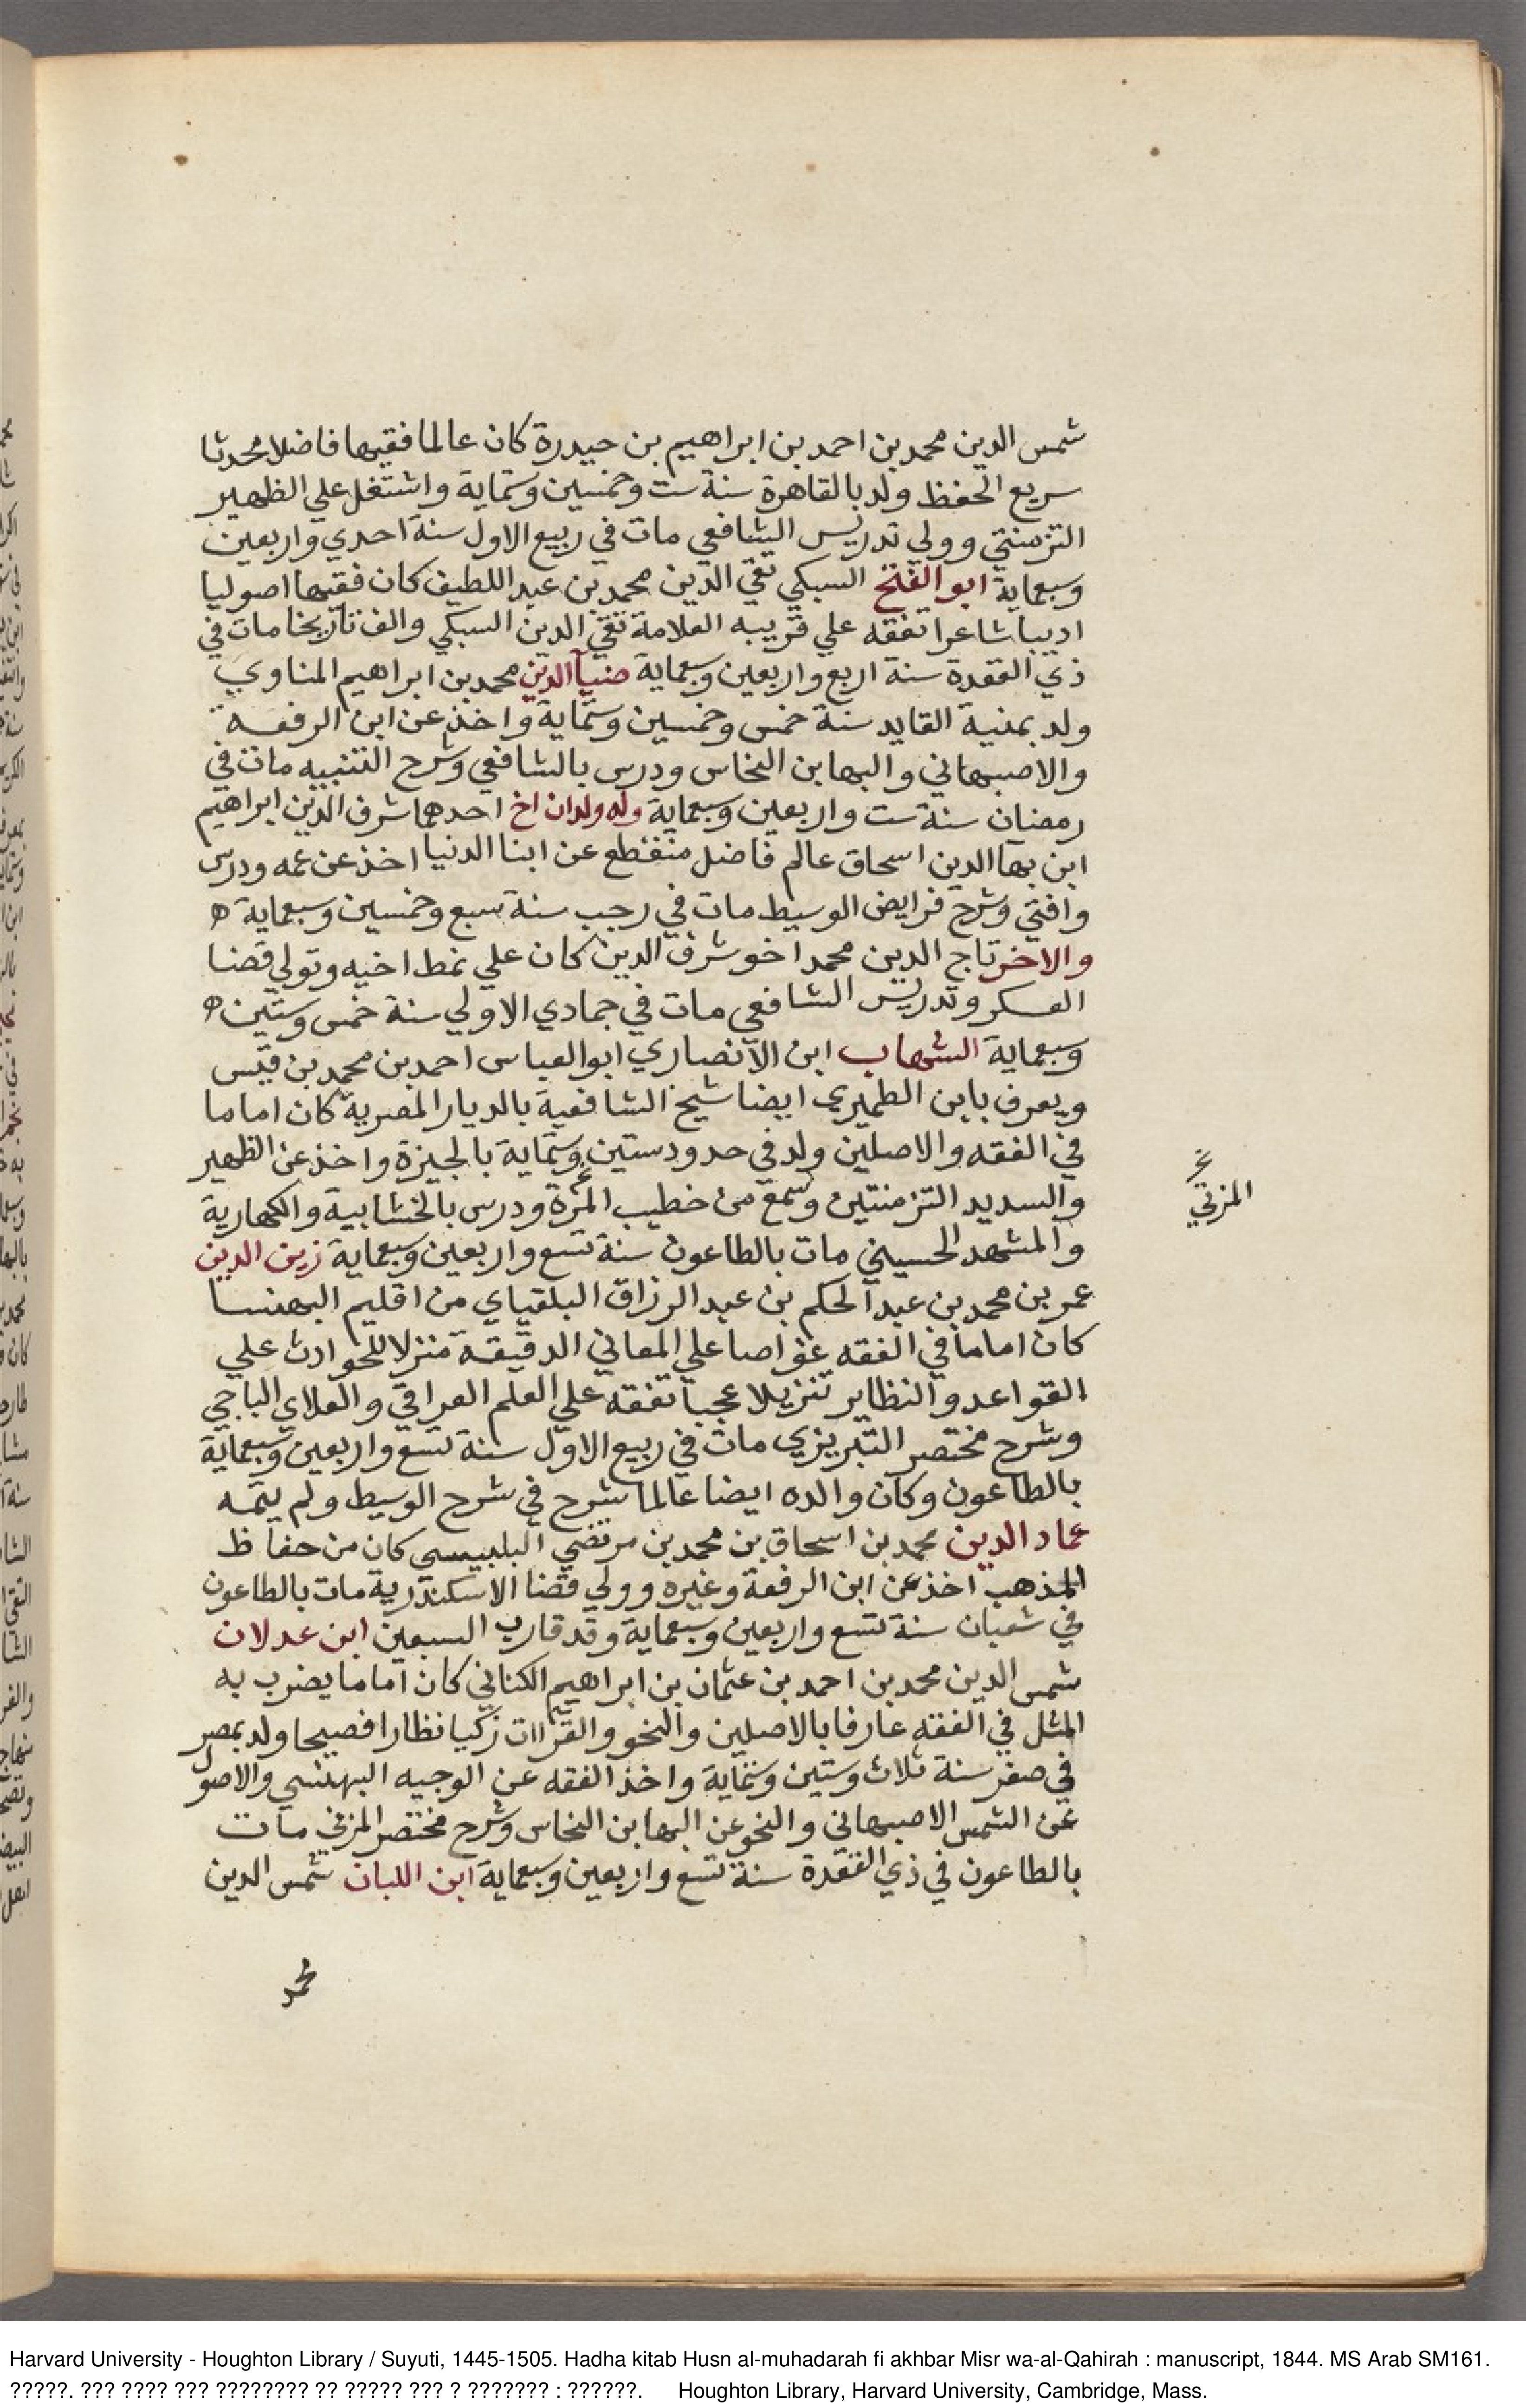 شمس الدين محمد بن احمد بن ابراهيم بن حيدرة كان عالما فقيها فاضلا محدثا
سريع الحفظ ولد بالقاهرة سنة ست وخمسين وستماية واشتغل علي الظهير
التزمنتي وولي تدريس الشافعي مات في ربيع الاول سنة احدي واربعين
وسبعماية ابو الفتح السبكي تقي الدين محمد بن عبد اللطيف كان فقيها اصوليا
اديبا شاعرا تفقه علي قريبه العلامة تقي الدين السبكي والف تاريخا مات في
ذي القعدة سنة اربع واربعين وسبعماية ضيآ الدين محمد بن ابراهيم المناوي
ولد بمنية القايد سنة خمس وخمسين وستماية واخذ عن ابن الرفعة
والاصبهاني والبها بن النحاس ودرس بالشافعي وشرح التنبيه مات في
رمضان سنة ست واربعين وسبعماية وله ولدان اخ احدهما شرف الدين ابراهيم
ابن بهآ الدين اسحاق عالم فاضل منقطع عن ابنا الدنيا اخذ عن عمه ودرس
وافتي وشرح فرايض الوسيط مات في رجب سنة سبع وخمسين وسبعماية ه
والاخر تاج الدين محمد اخو شرف الدين كان علي نمط اخيه وتولي قضا
العسكر وتدريس الشافعي مات في جمادي الاولي سنة خمس وستين ه
وسبعماية الشهاب ابن الانصاري ابو العباس احمد بن محمد بن قيس
ويعرف بابن الظهيري ايضا شيخ الشافعية بالديار المصرية كان اماما
في الفقه والاصلين ولد في حدود ستين وستماية بالجيزة واخذ عن الظهير
والسديد التزمنتين وسمع من خطيب المزة ودرس بالخشابية والكهارية
والمشهد الحسيني مات بالطاعون سنة تسع واربعين وسبعماية زين الدين
عمر بن محمد بن عبد الحكم بن عبد الرزاق البلقياي من اقليم البهنسا
كان اماما في الفقه غواصا علي المعاني الدقيقة منزلا للحوادث علي
القواعد والنظاير تنزيلا عجبا تفقه علي العلم العراقي والعلاي الباجي
وشرح مختصر التبريزي مات في ربيع الاول سنة تسع واربعين وسبعماية
بالطاعون وكان والده ايضا عالما شرح في شرح الوسيط ولم يتمه
عماد الدين محمد بن اسحاق بن محمد بن مرتضي البلبيسي كان من حفاظ
المذهب اخذ عن ابن الرفعة وغيره وولي قضا الاسكندرية مات بالطاعون
في شعبان سنة تسع واربعين وسبعماية وقد قارب السبعين ابن عدلان
شمس الدين محمد بن احمد بن عثمان بن ابراهيم الكناني كان اماما يضرب به
المثل في الفقه عارفا بالاصلين والنحو والقرّاات زكيا نظارا فصيحا ولد بمصر
في صفر سنة ثلاث وستين وستماية واخذ الفقه عن الوجيه البهنسي والاصول
عن الشمس الاصبهاني والنحو عن البها بن النحاس وشرح مختصر المزني مات
بالطاعون في ذي القعدة سنة تسع واربعين وسبعماية ابن اللبان شمس الدين
محمد
المزني
Harvard University - Houghton Library / Suyuti, 1445-1505. Hadha kitab Husn al-muhadarah fi akhbar Misr wa-al-Qahirah : manuscript, 1844. MS Arab SM161.
?????. ??? ???? ??? ???????? ?? ????? ??? ? ??????? : ??????. Houghton Library, Harvard University, Cambridge, Mass.